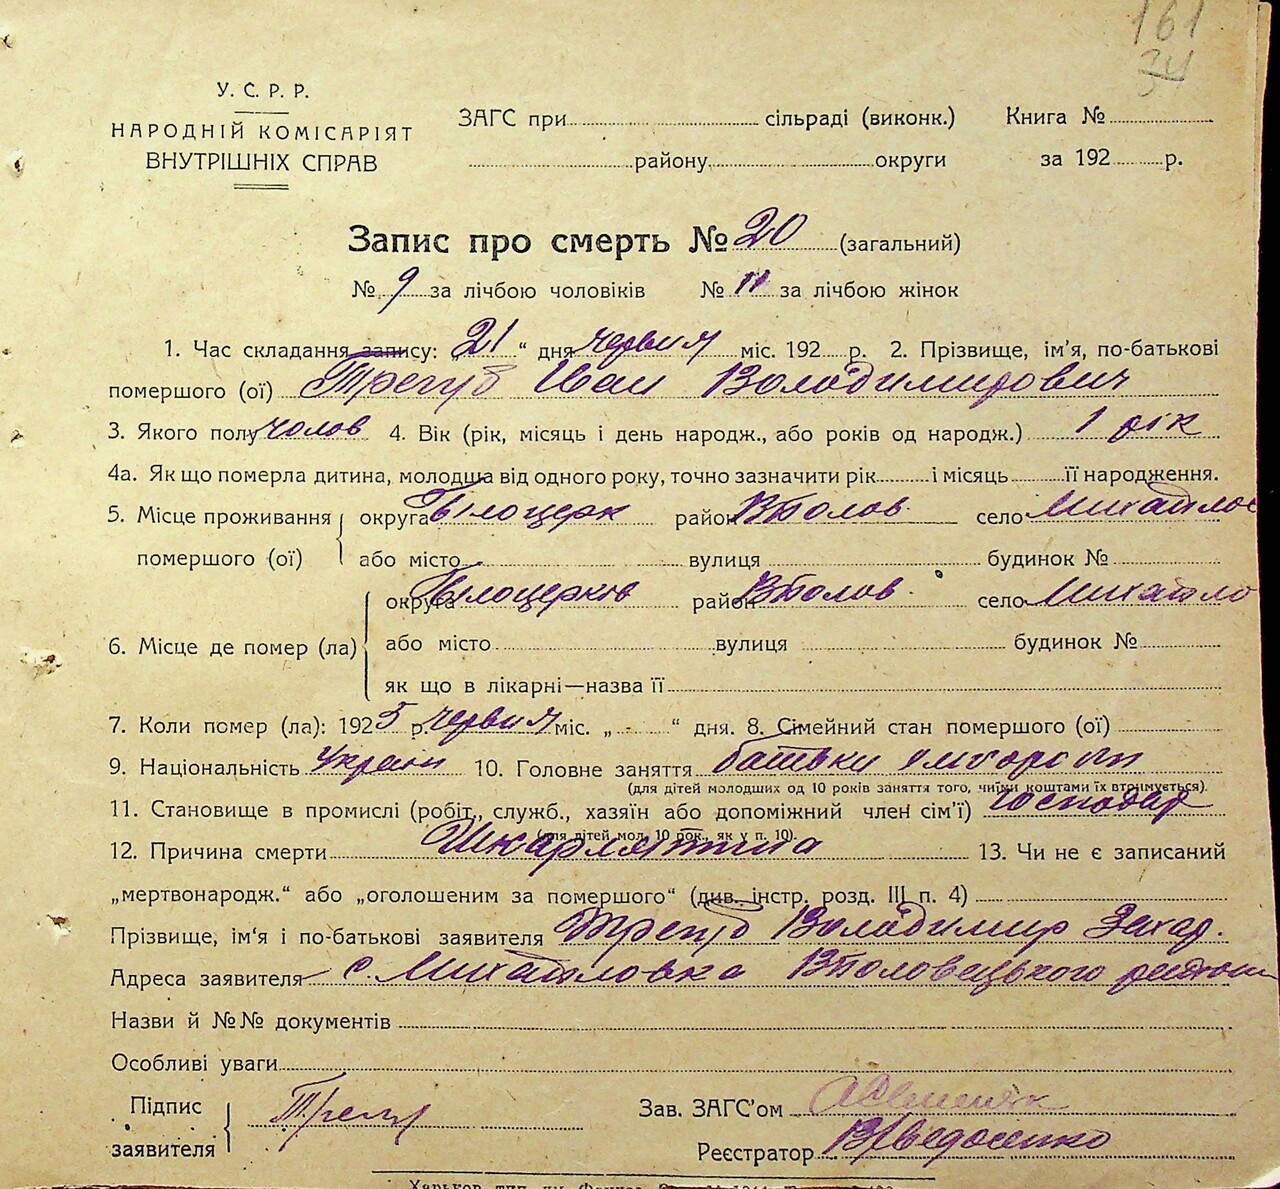 161
34
У. С. Р. Р.
НАРОДНІЙ КОМІСАРІЯТ
ВНУТРІШНІХ СПРАВ
ЗАГС при сільраді (виконк.)
району округи
Книга №
за 192 р.
Запис про смерть № 20 (загальний)
№ 9 за лічбою чоловіків № 11 за лічбою жінок
1. Час складання запису: 21 “ дня червня міс. 192 р. 2. Прізвище, ім’я, по-батькові
помершого (ої) Трегуб Іван Володимирович
3. Якого полу чолов 4. Вік (рік, місяць і день народж., або років од народж.) 1 рік
4а. Як що померла дитина, молодша від одного року, точно зазначити рік і місяць її народження.
5. Місце проживання округа Білоцерк район Втолов село Михайлов
помершого (ої) або місто вулиця будинок №
округа Білоцерков район Втолов. село Михайло
6. Місце де помер (ла) або місто вулиця будинок №
як що в лікарні—назва її
7. Коли помер (ла): 1925 р. червня міс. „ “ дня. 8. Сімейний стан помершого (ої)
9. Національність Україн 10. Головне заняття батьки
(для дітей молодших од 10 років заняття того, чиїми коштами їх втримується).
11. Становище в промислі (робіт., служб., хазяїн або допоміжний член сім’ї) господар
(для дітей мол. 10 рок., як у п. 10).
12. Причина смерти Шкарлятина 13. Чи не є записаний
„мертвонародж.“ або „оголошеним за помершого“ (див. інстр. розд. III п. 4)
Прізвище, ім’я і по-батькові заявителя Трегуб Володимир Захар.
Адреса заявителя с. Михайловка Втоловецького району
Назви й №№ документів
Особливі уваги
Підпис
заявителя Трегуб
Зав. ЗАГС’ом
Реєстратор